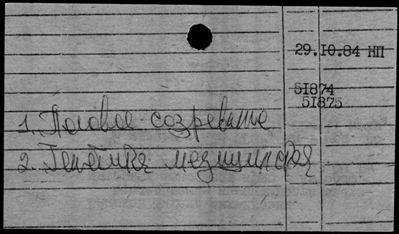 29.10.84 НП
51874
51875
1. Половое созревание
2. Генетика медицинская